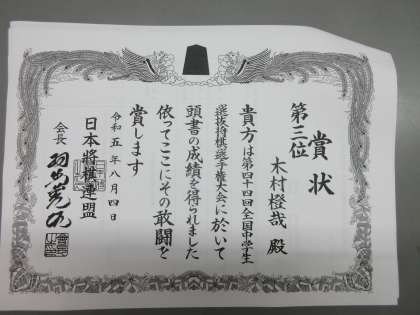 賞状
第三位
木村橙哉 殿
貴方は第四十四回全国中学生
選抜将棋選手権大会に於いて
頭書の成績を得られました
依ってここにその敢闘を
賞します
令和五年八月四日
日本将棋連盟
会長 羽生善治